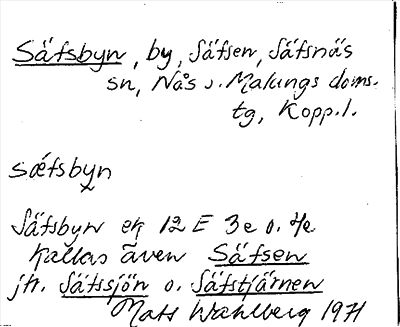 Säfsbyn, by, Säfsen, Säfsnäs
sn, Nås o. Malungs doms.
tg, Kopp.l.
sǽfsbyn
Säfsbyn ek 12 E 3e o. 4e
Kallas även Säfsen
jfr. Säfssjön o. Säfstjärnen
Mats Wahlberg 1971